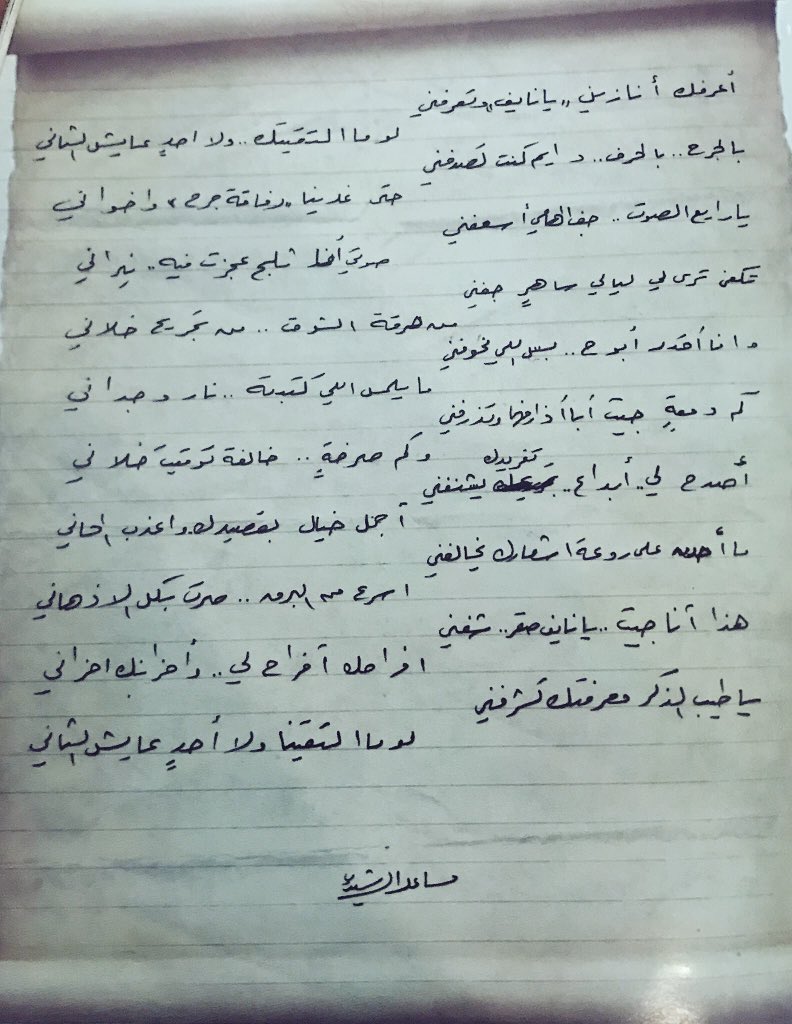 أعرفك أنا زين "يا نايف" وتعرفني
لو ما التقيتك.. ولا احدٍ عايش الثاني
بالجرح.. بالحرف.. دايم كنت تصدفني
حتى غدينا "رفاقة جرح" واخواني
يا رايع الصوت.. جف الهامي أسعفني
صوتي ثلج عجزت فيه.. نيراني
تكفى ترى لي ليالي ساهرٍ جفني
من حرقة الشوق.. من تجريح خلاني
وانا أقدر أبوح.. بس اللي يخوفني
ما يلمس اللي كتبته.. نار وجداني
كم دمعةٍ جيت أبا أذارفها وتذرفني
وكم صرخةٍ.. خالفة توقيت خلاني
أصدح لي.. أبداع.. تغريدك يشنفني
أجمل خيال بقصيدك واعذب الحاني
ما أحدن على روعة اشعارك يخالفني
اسرع من البرق.. مرت بكل الاذهاني
هذا أنا جيت.. يا نايف صقر.. شفني
افراحك أفراح لي.. وأحزانك احزاني
يا طيب الذكر معرفتك تشرفني
لو ما التقينا ولا أحدٍ عايش الثاني
مساعد الرشيدي